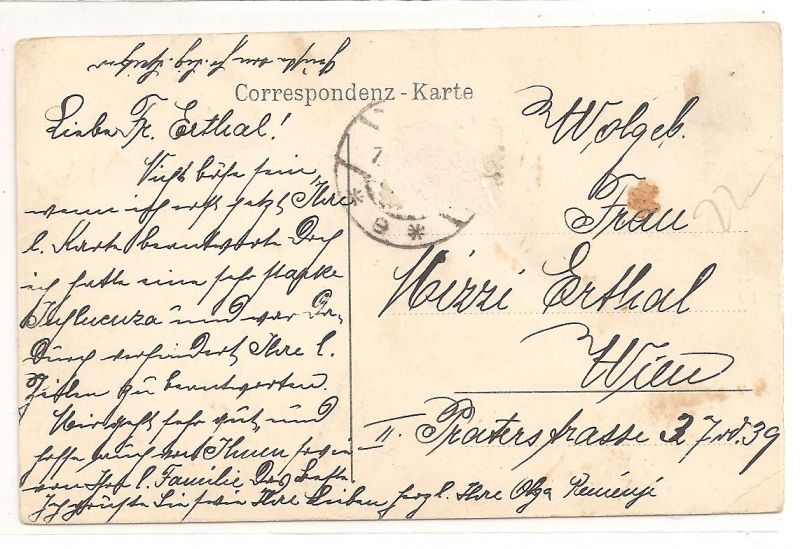 Correspondenz - Karte
Liebe Fr. Erthal!
Nicht böse sein,
wenn ich erst jetzt Ihre
l. Karte beantworte Doch
ich hatte eine sehr starke
Influenza und war Da-
Durch verhindert Ihre l.
Zeilen zu beantworten.
Mir geht sehr gut, und
hoffe auch von Ihnen sowie
von Ihr l. Familie Das Beste.
Ich grüsse Sie sowie Ihre Lieben herzl. Ihre Olga Reményi
Wolgeb.
Frau
Mizzi Erthal
Wien
II. Praterstrasse 37 od. 39